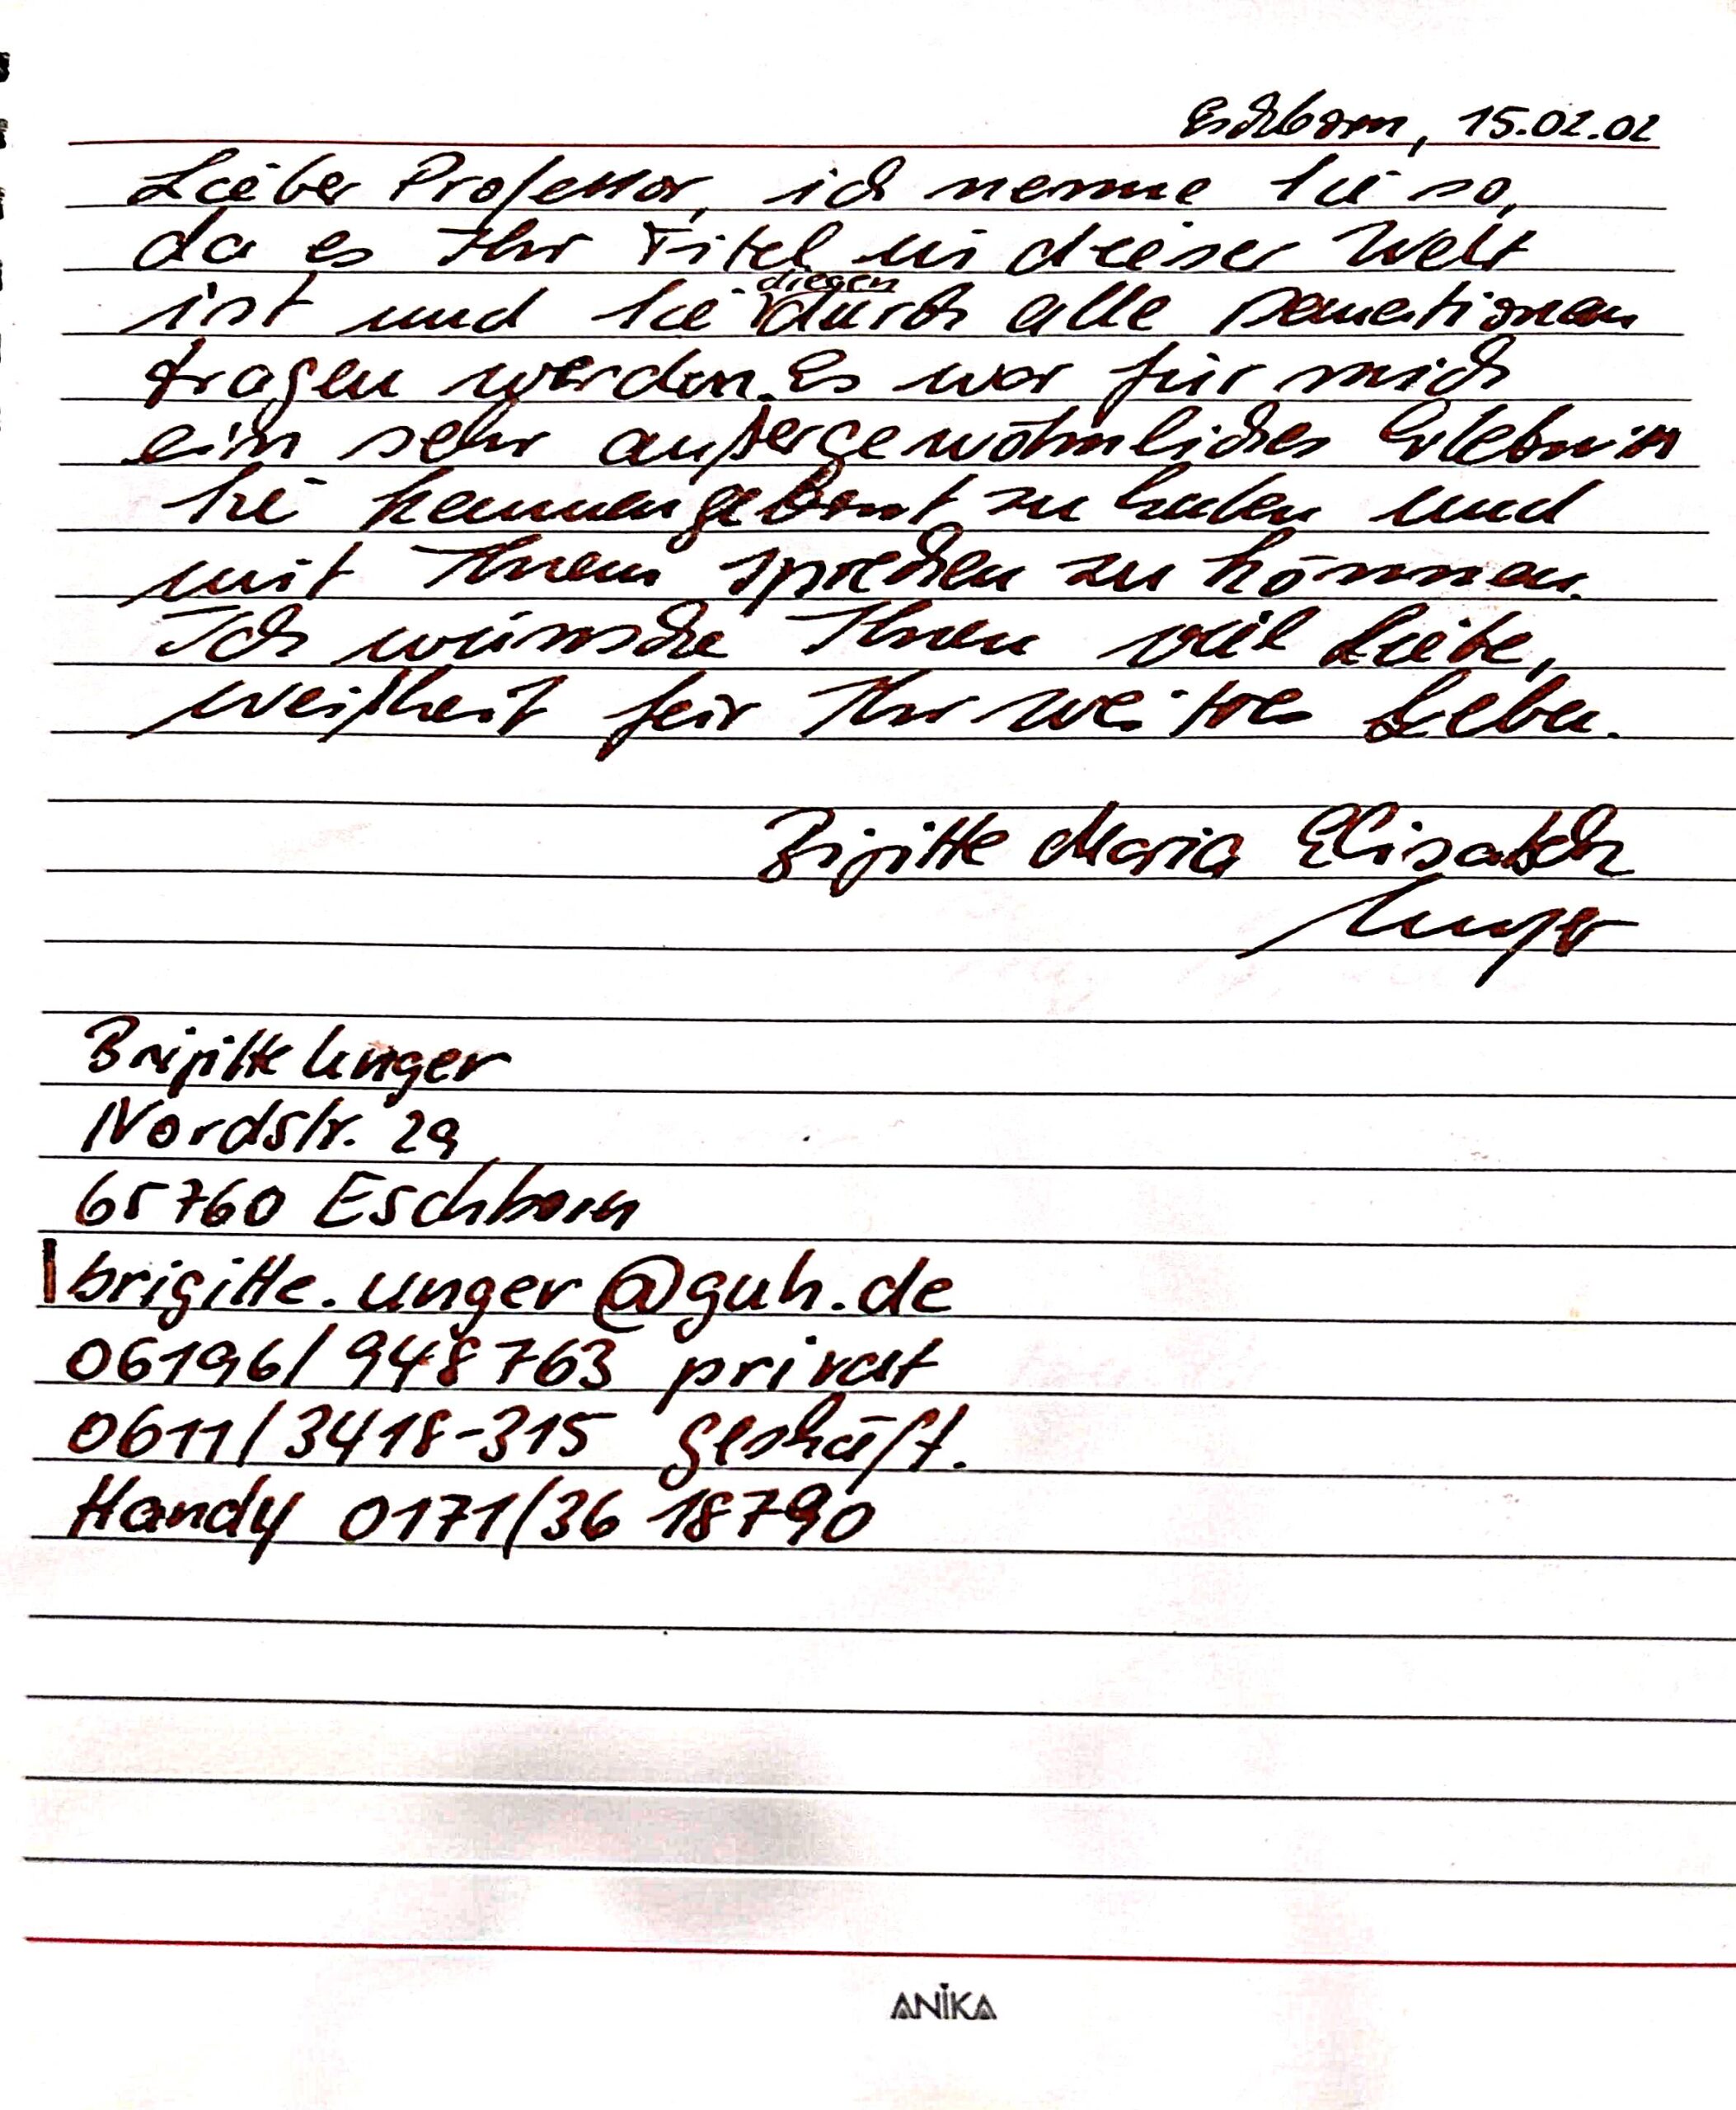 Eschborn, 15.02.02
Lieber Professor, ich nenne Sie so,
da es Ihr Titel in dieser Welt
ist und Sie diesen durch alle
tragen werden. Es war für mich
ein sehr außergewöhnliches Erlebnis
Sie kennengelernt zu haben und
mit Ihnen sprechen zu können.
Ich wünsche Ihnen viel Liebe,
Weißheit für Ihr weitres Leben.
Brigitte Maria Elisabeth
Unger
Brigitte Unger
Nordstr. 29
65760 Eschborn
brigitte.unger@guh.de
06196/948763 privat
0611/3418-315 geschäft.
Handy 0171/36 18790
ANIKA